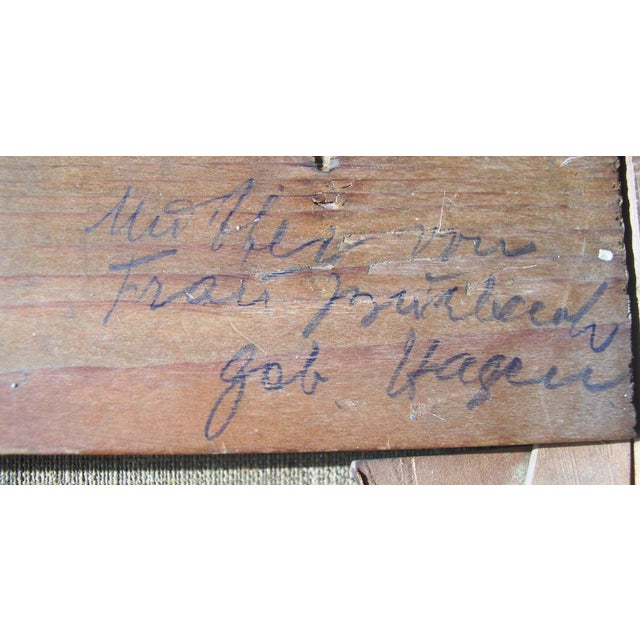 Mutter von
Frau Burbach
geb. Hagen